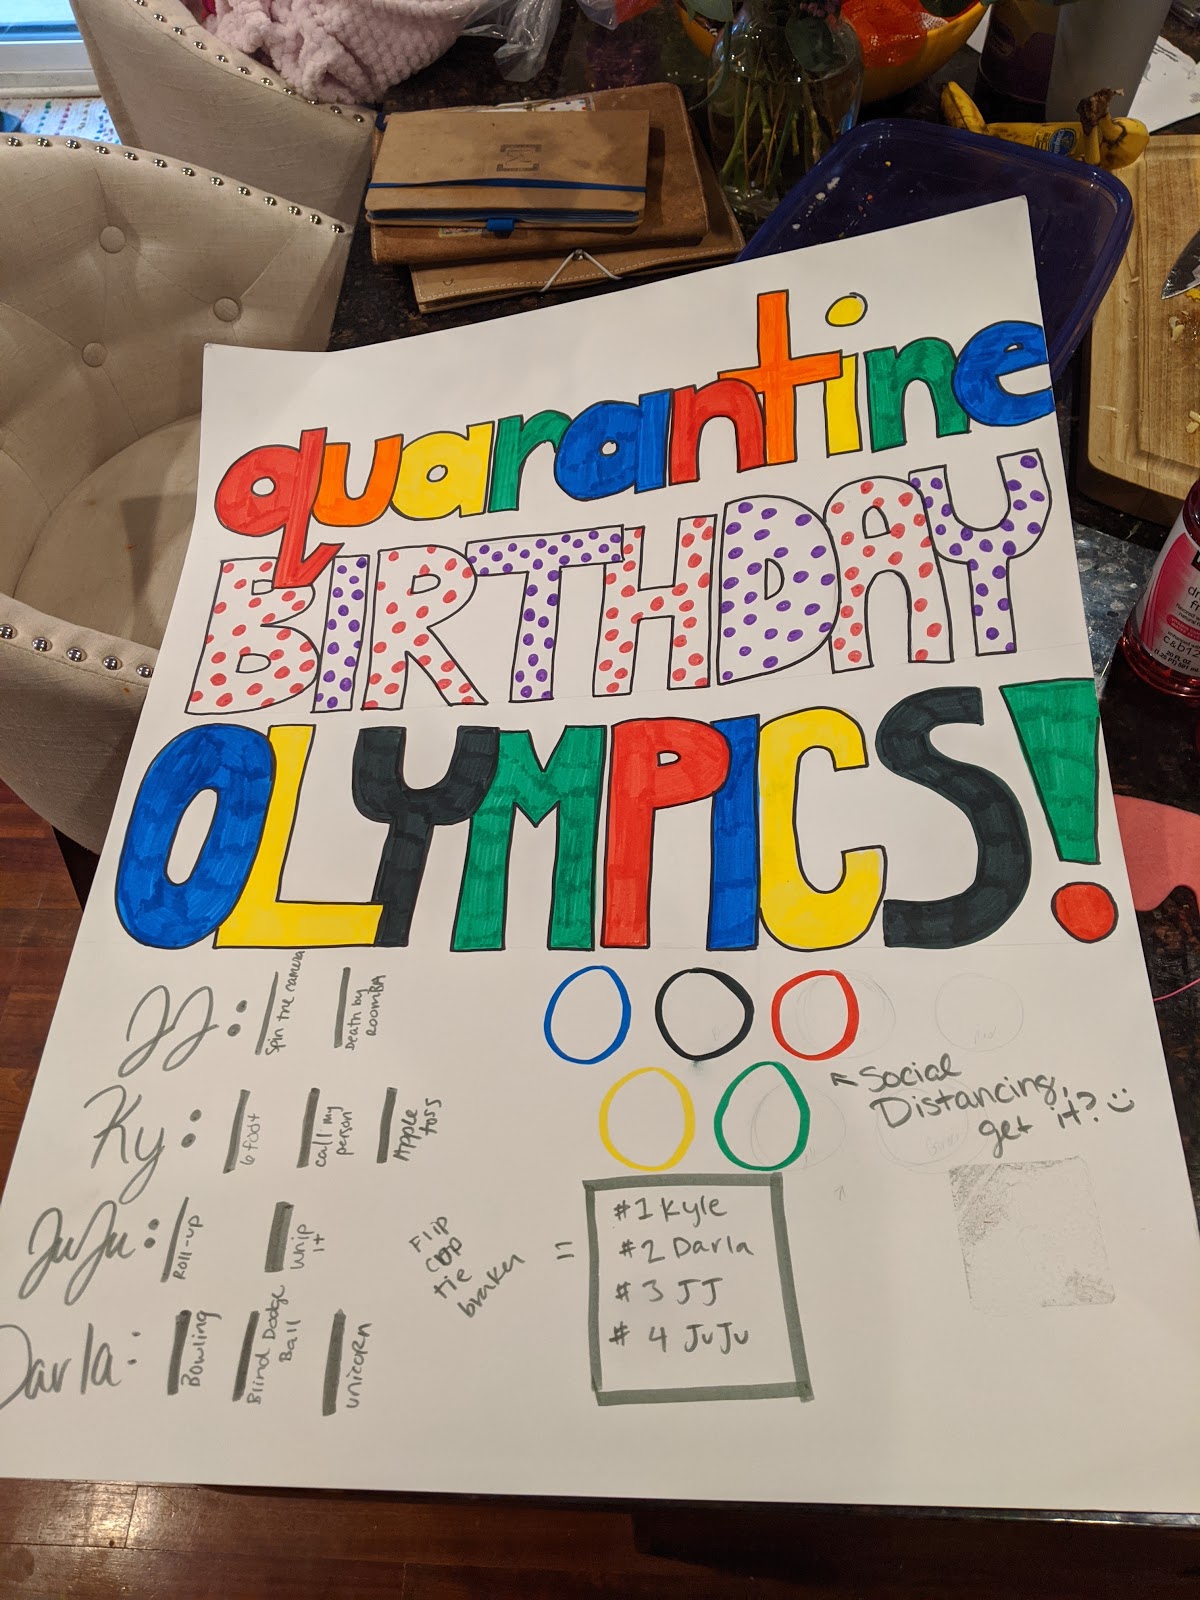 quarantine
BIRTHDAY
OLYMPICS!
JJ:
Spin the camera
Death by
ROOMBA
Ky:
6 foot
Call my
person
Apple
toss
JuJu:
Roll-up
Whip
it
Darla:
Bowling
Blind Dodge
Ball
unicorn
Flip
cup
tie
braker
=
#1 Kyle
#2 Darla
#3 JJ
#4 JuJu
Social
Distancing,
get it? :)
C&B12
20 FL OZ